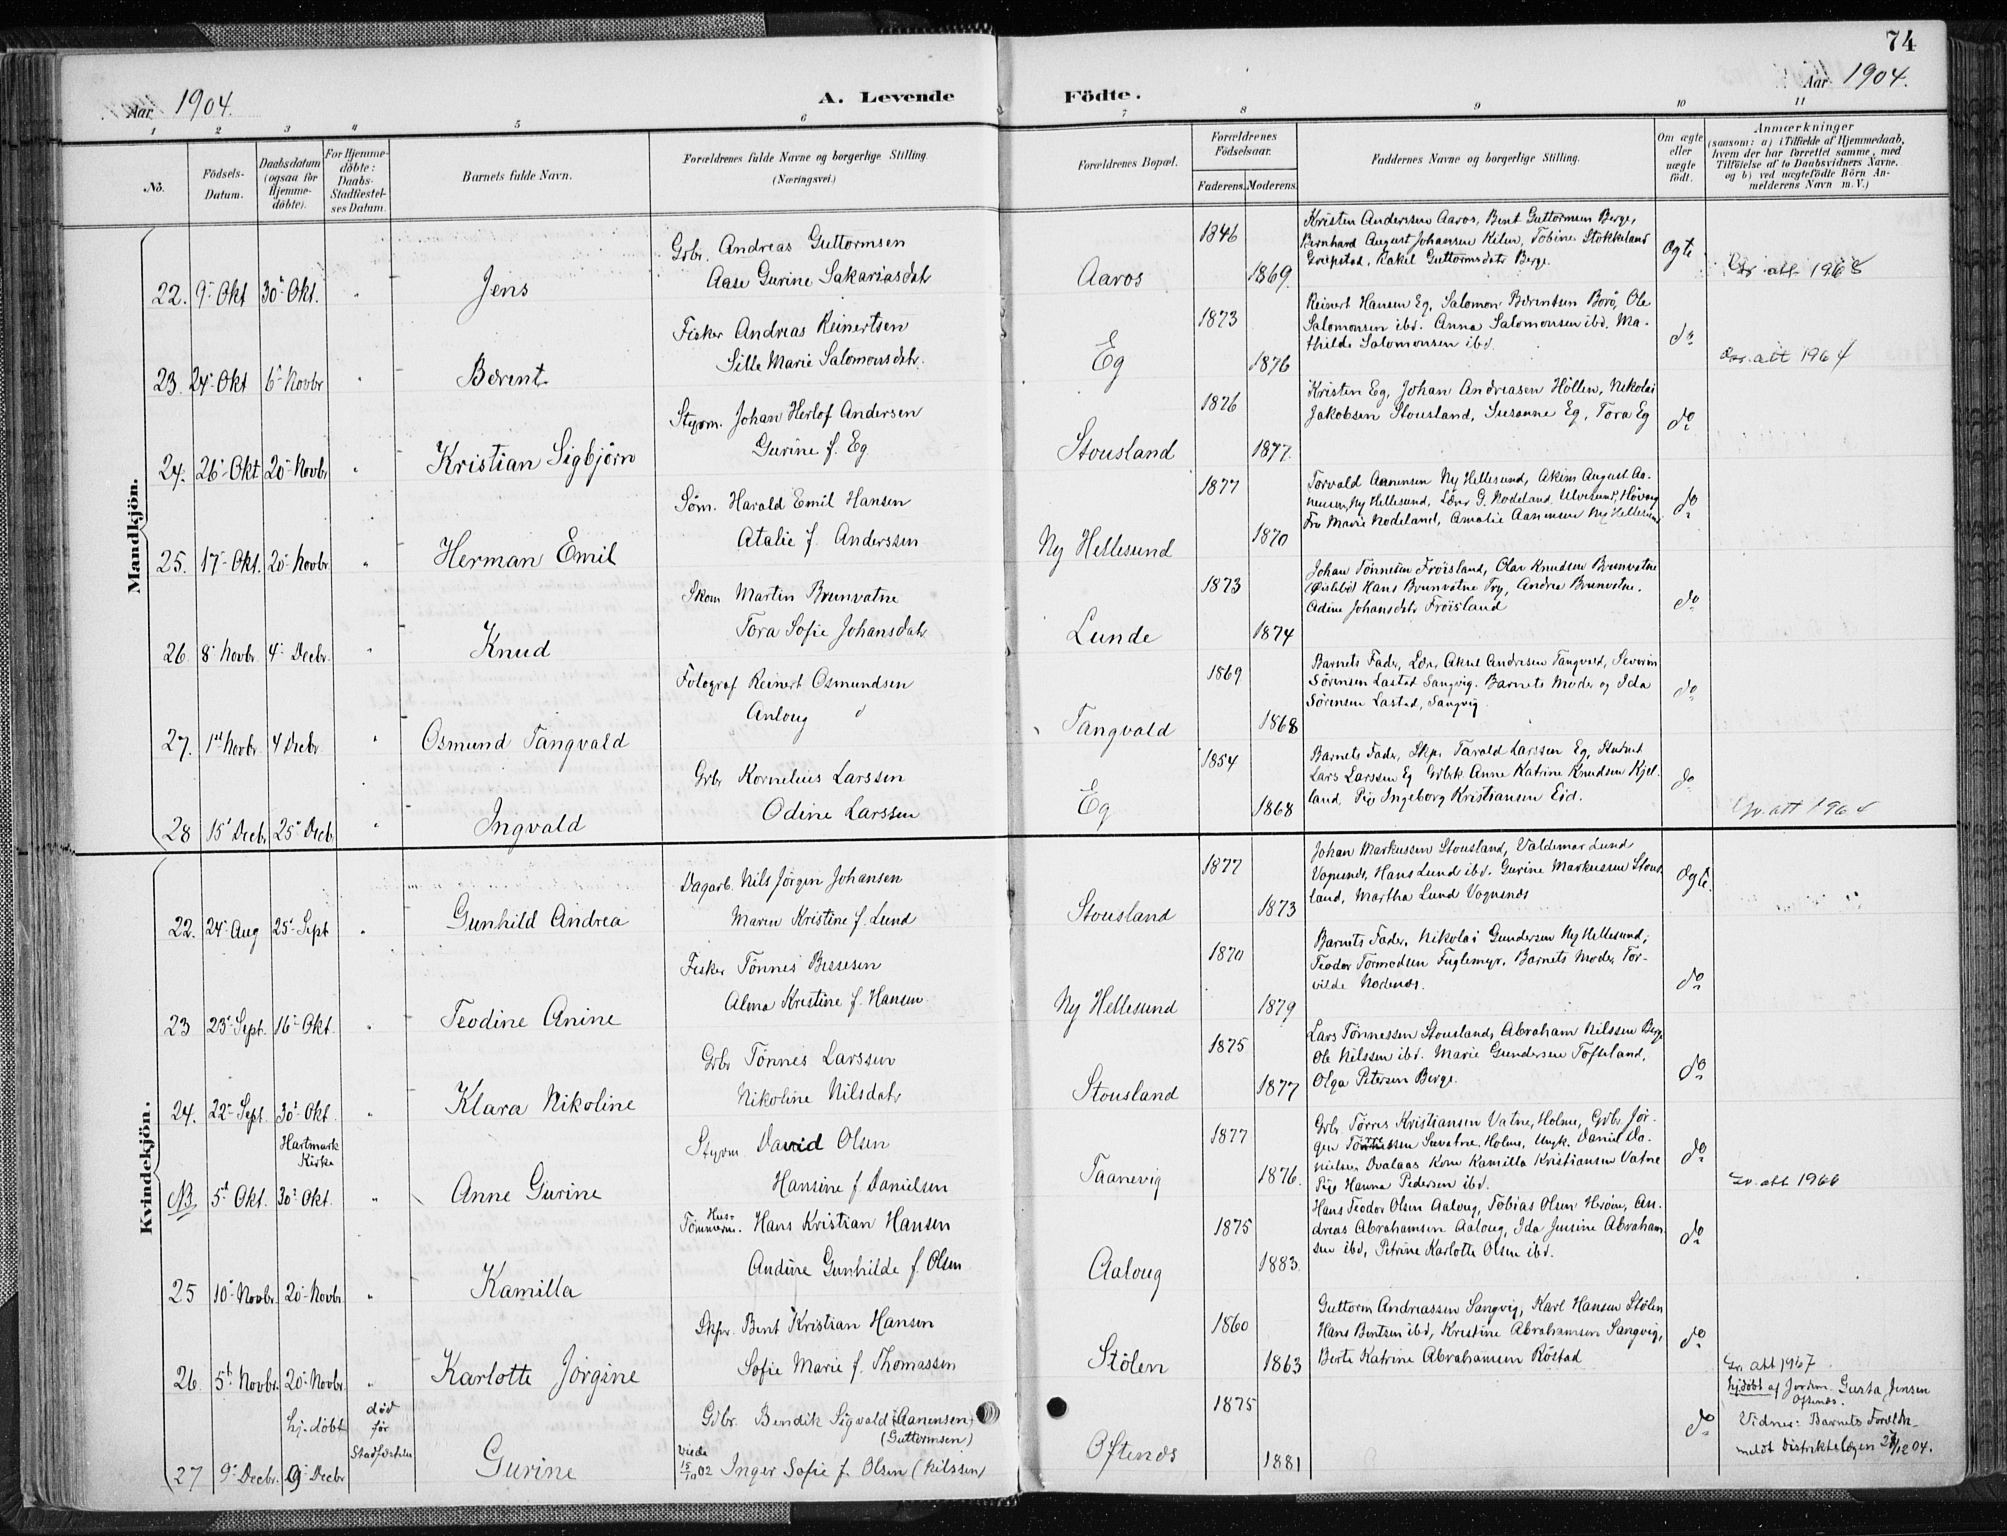 74
Aar 1904.
A. Levende Födte.
Aar 1904.
1 2 3 4 5 6 7 8 9 10 11
No.
Födsels-Datum.
Daabsdatum (ogsaa for Hjemme-döbte).
For Hjemme-döbte: Daabs-Stadfæstel-ses Datum.
Barnets fulde Navn.
Forældrenes fulde Navne og borgerlige Stilling. (Næringsvei.)
Forældrenes Bopæl.
Forældrenes Födselsaar.
Faderens. Moderens.
Faddernes Navne og borgerlige Stilling.
Om ægte eller uægte födt.
Anmærkninger
(saasom: a) i Tilfælde af Hjemmedaab,
hvem der har forrettet samme, med
Tilföielse af to Daabsvidners Navne.
og b) ved uægtefödte Börn An-
melderens Navn m. V.)
Mandkjön.
22. 9. Okt 30. Okt. Jens
Gbr. Andreas Guttormsen
Aase Gurine Sakariasdatr
Aaros 1846 1869.
Kristen Anderssen Aaros, Bent Guttormsen Berge,
Bernhard August Johansen Kilen, Tobine Stokkeland
Greipstad, Rakel Guttormsdatr Berge
Ægte
23. 24. Okt 6. Novbr Berent
Fisker Andreas Reinertsen
Sille Marie Salomonsdatr.
Eg 1873 1876
Reinert Hansen Eg, Salomon Berentsen Borö, Ole
Salomonsen ibd. Anna Salomonsen ibd. Ma-
thilde Salomonsen ibd.
do
att 1964
24. 26. Okt 20. Novbr Kristian Sigbjörn
Styrm. Johan Herlof Andersen
Gurine f. Eg
Stousland 1876 1877.
Kristen Eg, Johan Andreasen Höllen, Nikolai
Jakobsen Stousland, Susanne Eg, Tora Eg
do
25. 17. Okt. 20. Novbr Herman Emil
Söm. Harald Emil Hansen
Atalie f. Anderssen
Ny Hellesund 1877 1870
Torvald Aanensen Ny Hellesund, Akim August Aa-
nensen, Ny Hellesund, Lær G. Nodeland, Ulvesund, Hövaag
Fru Marie Nodeland, Amalie Aanensen Ny Hellesund
do
26 8. Novbr. 4. Decbr. Knud
Skom Martin Brunvatne
Tora Sofie Johansdatr
Lunde 1873 1874
Johan Tönnesen Fröisland, Olav Knudsen Brunvatne
(Öislebö) Hans Brunvatne Try, Andrea Brunvatne.
Adine Johansdatr Fröisland
do
27. 1st Novbr. 4 Decbr Osmund Tangvald
Fotograf Reinert Osmundsen
Anloug
Tangvald 1869 1868
Barnets Fader, Lær. Aksel Andresen Tangvald, Severin
Sörensen Lastad Sangvig. Barnets Moder og Ida
Sörensen Lastad, Sangvig.
do
28 15 Decbr 25. Decb Ingvald
Gbr Kornelius Larssen
Odine Larssen
Eg 1854 1868
Barnets Fader, Skp. Tarald Larssen Eg, Student
Lars Larssen Eg Gbrk Anne Katrine Knudsen Kjel-
land, Pige Ingeborg Kristiansen Eid.
do
att 1964
Kvindekjön.
22. 24. Aug 25. Sept Gunhild Andrea
Dagarb. Nils Jörgen Johansen
Maren Kristine f. Lund
Stousland 1877 1873
Johan Markussen Stousland, Valdemar Lund
Vognsnes, Hans Lund ibd. Gurine Markussen Stous-
land, Martha Lund Vognsnes
Ægte.
23 23. Sept. 16. Okt. Teodine Anine
Fisker Tönnes Bessesen
Alma Kristine f. Hansen
Ny Hellesund 1870 1879
Barnets Fader, Nikolai Gundersen Ny Hellesund,
Teodor Tormodsen Fuglemyr, Barnets Moder, Tor-
vilde Nodenes.
do
24. 22. Sept. 30. Okt. Klara Nikoline
Gbr Tönnes Larssen
Nikoline Nilsdatr
Stousland 1875 1877
Lars Tönnessen Stousland, Abraham Nilssen Berge
Ole Nilssen ibd. Marie Gundersen Tofteland,
Olga Petersen Berge.
do
Hartmark Kirke
NB. 5. Okt. 30. Okt. Anne Gurine
Styrm David Olsen
Hansine f. Danielsen
Taanevig 1877 1876.
Gbr. Törres Kristiansen Vatne, Holme, Gbr. Jör-
gen Suvatne, Holme, Ungk. Daniel Da-
nielsen Dvalaas Kone Kamilla Kristiansen Vatne
Pige Hanna Pedersen ibd.
do
att 1966
25 10. Novbr. 20. Novbr Kamilla
Hus-Tömmerm. Hans Kristian Hansen
Andine Gunhilde f. Olsen
Aaloug 1875 1883.
Hans Teodor Olsen Aaloug, Tobias Olsen Heröen, An-
dreas Abrahamsen Aaloug, Ida Jensine Abraham-
sen ibd, Petrine Karlotte Olsen ibd.
do
26 5. Novbr. 20. Novbr. Karlotte Jörgine
Skpr. Bent Kristian Hansen
Sofie Marie f. Thomassen
Stölen 1860 1863
Guttorm Andreassen Sangvig, Karl Hansen Stölen
Hans Bentsen ibd, Kristine Abrahamsen Sangvig,
Berte Katrine Abrahamsen Röstad
do
att 1967
27 9. Decbr. hj.döbt 9 Decbr död för Stadfæstelse Gurine
Gbr. Bendik Sigvald (Aanensen) (Guttormsen)
viede 15/10 02 Inger Sofie f. Olsen (Nilssen)
Oftenes 1875 1881
do
hj.döbt af Jordm. Gusta Jensen
Oftenes.
Vidner: Barnets Foreldre
meldt Distriktslægen 27/12 04.